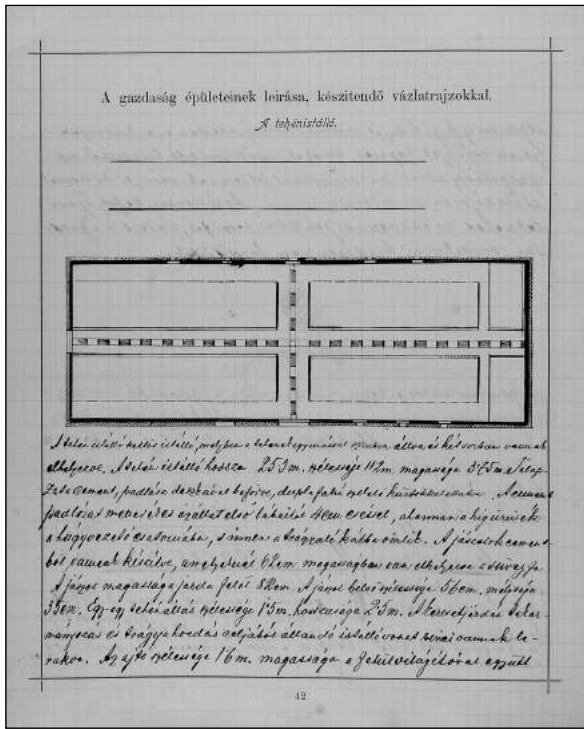 A gazdaság épületeinek leirása, készitendő vázlatrajzokkal.
A tehénistálló.
A tehén istálló kettős istálló, melyben a tehenek egymással szemben állva és két sorban vannak
elhelyezve. A tehén istálló hossza 25·3 m. szélessége 11·2 m. magassága 3·75 m.
cement,
padlózat állat első lábaitól 4 cm eséssel, ahonnan a hig ürülék
a hugyvezető csatornába, s innen a trágyalé kútba ömlik. A jászolok cement-
ből vannak készitve, amelyeknél 62 cm. magasságban van elhelyezve
A jászol magassága járda felől 82 cm. A jászol belső szélessége 56 cm. mélysége
35 cm. Egy-egy tehén állás szélessége 1·5 m. hosszusága 2·5 m. takar-
mányozás és trágyahordás céljából állandó istálló vannak le-
rakva. Az ajtó szélessége 1·6 m. magassága a felül együtt
42